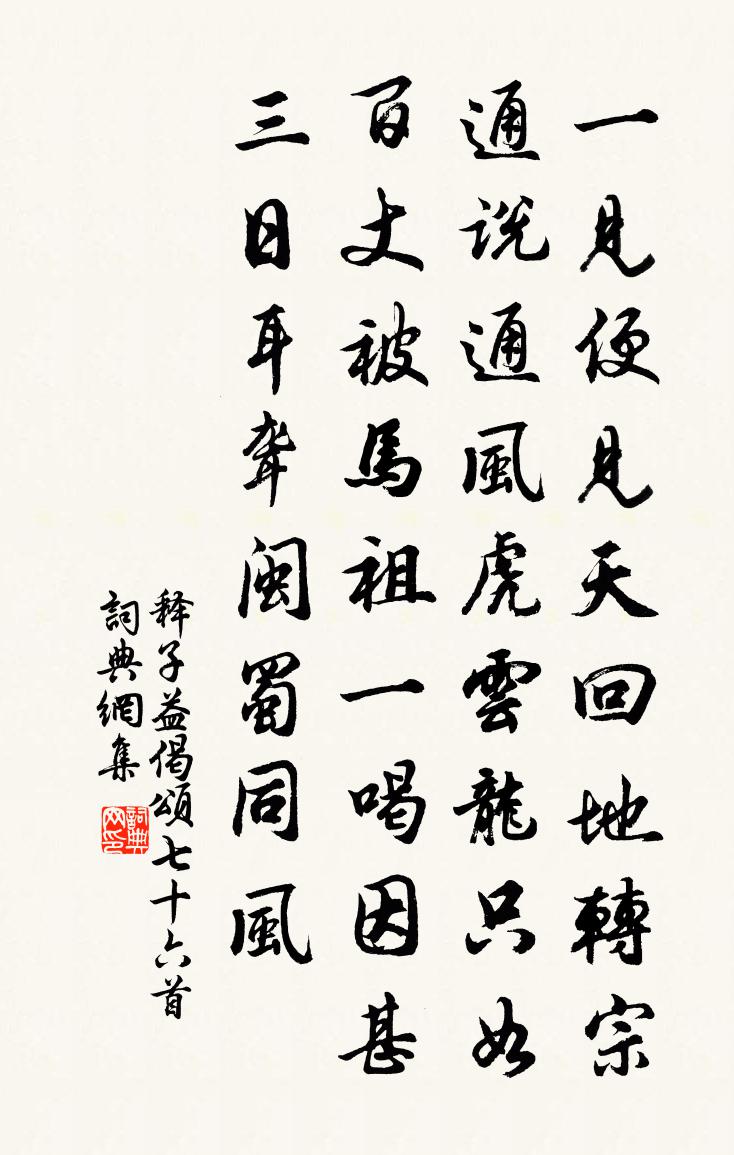 一見便見天回地轉宗
通説通風虎雲龍只如
百丈被馬祖一喝因甚
三日耳聾閩蜀同風
释子益偈頌七十六首
詞典網集
詞典网印